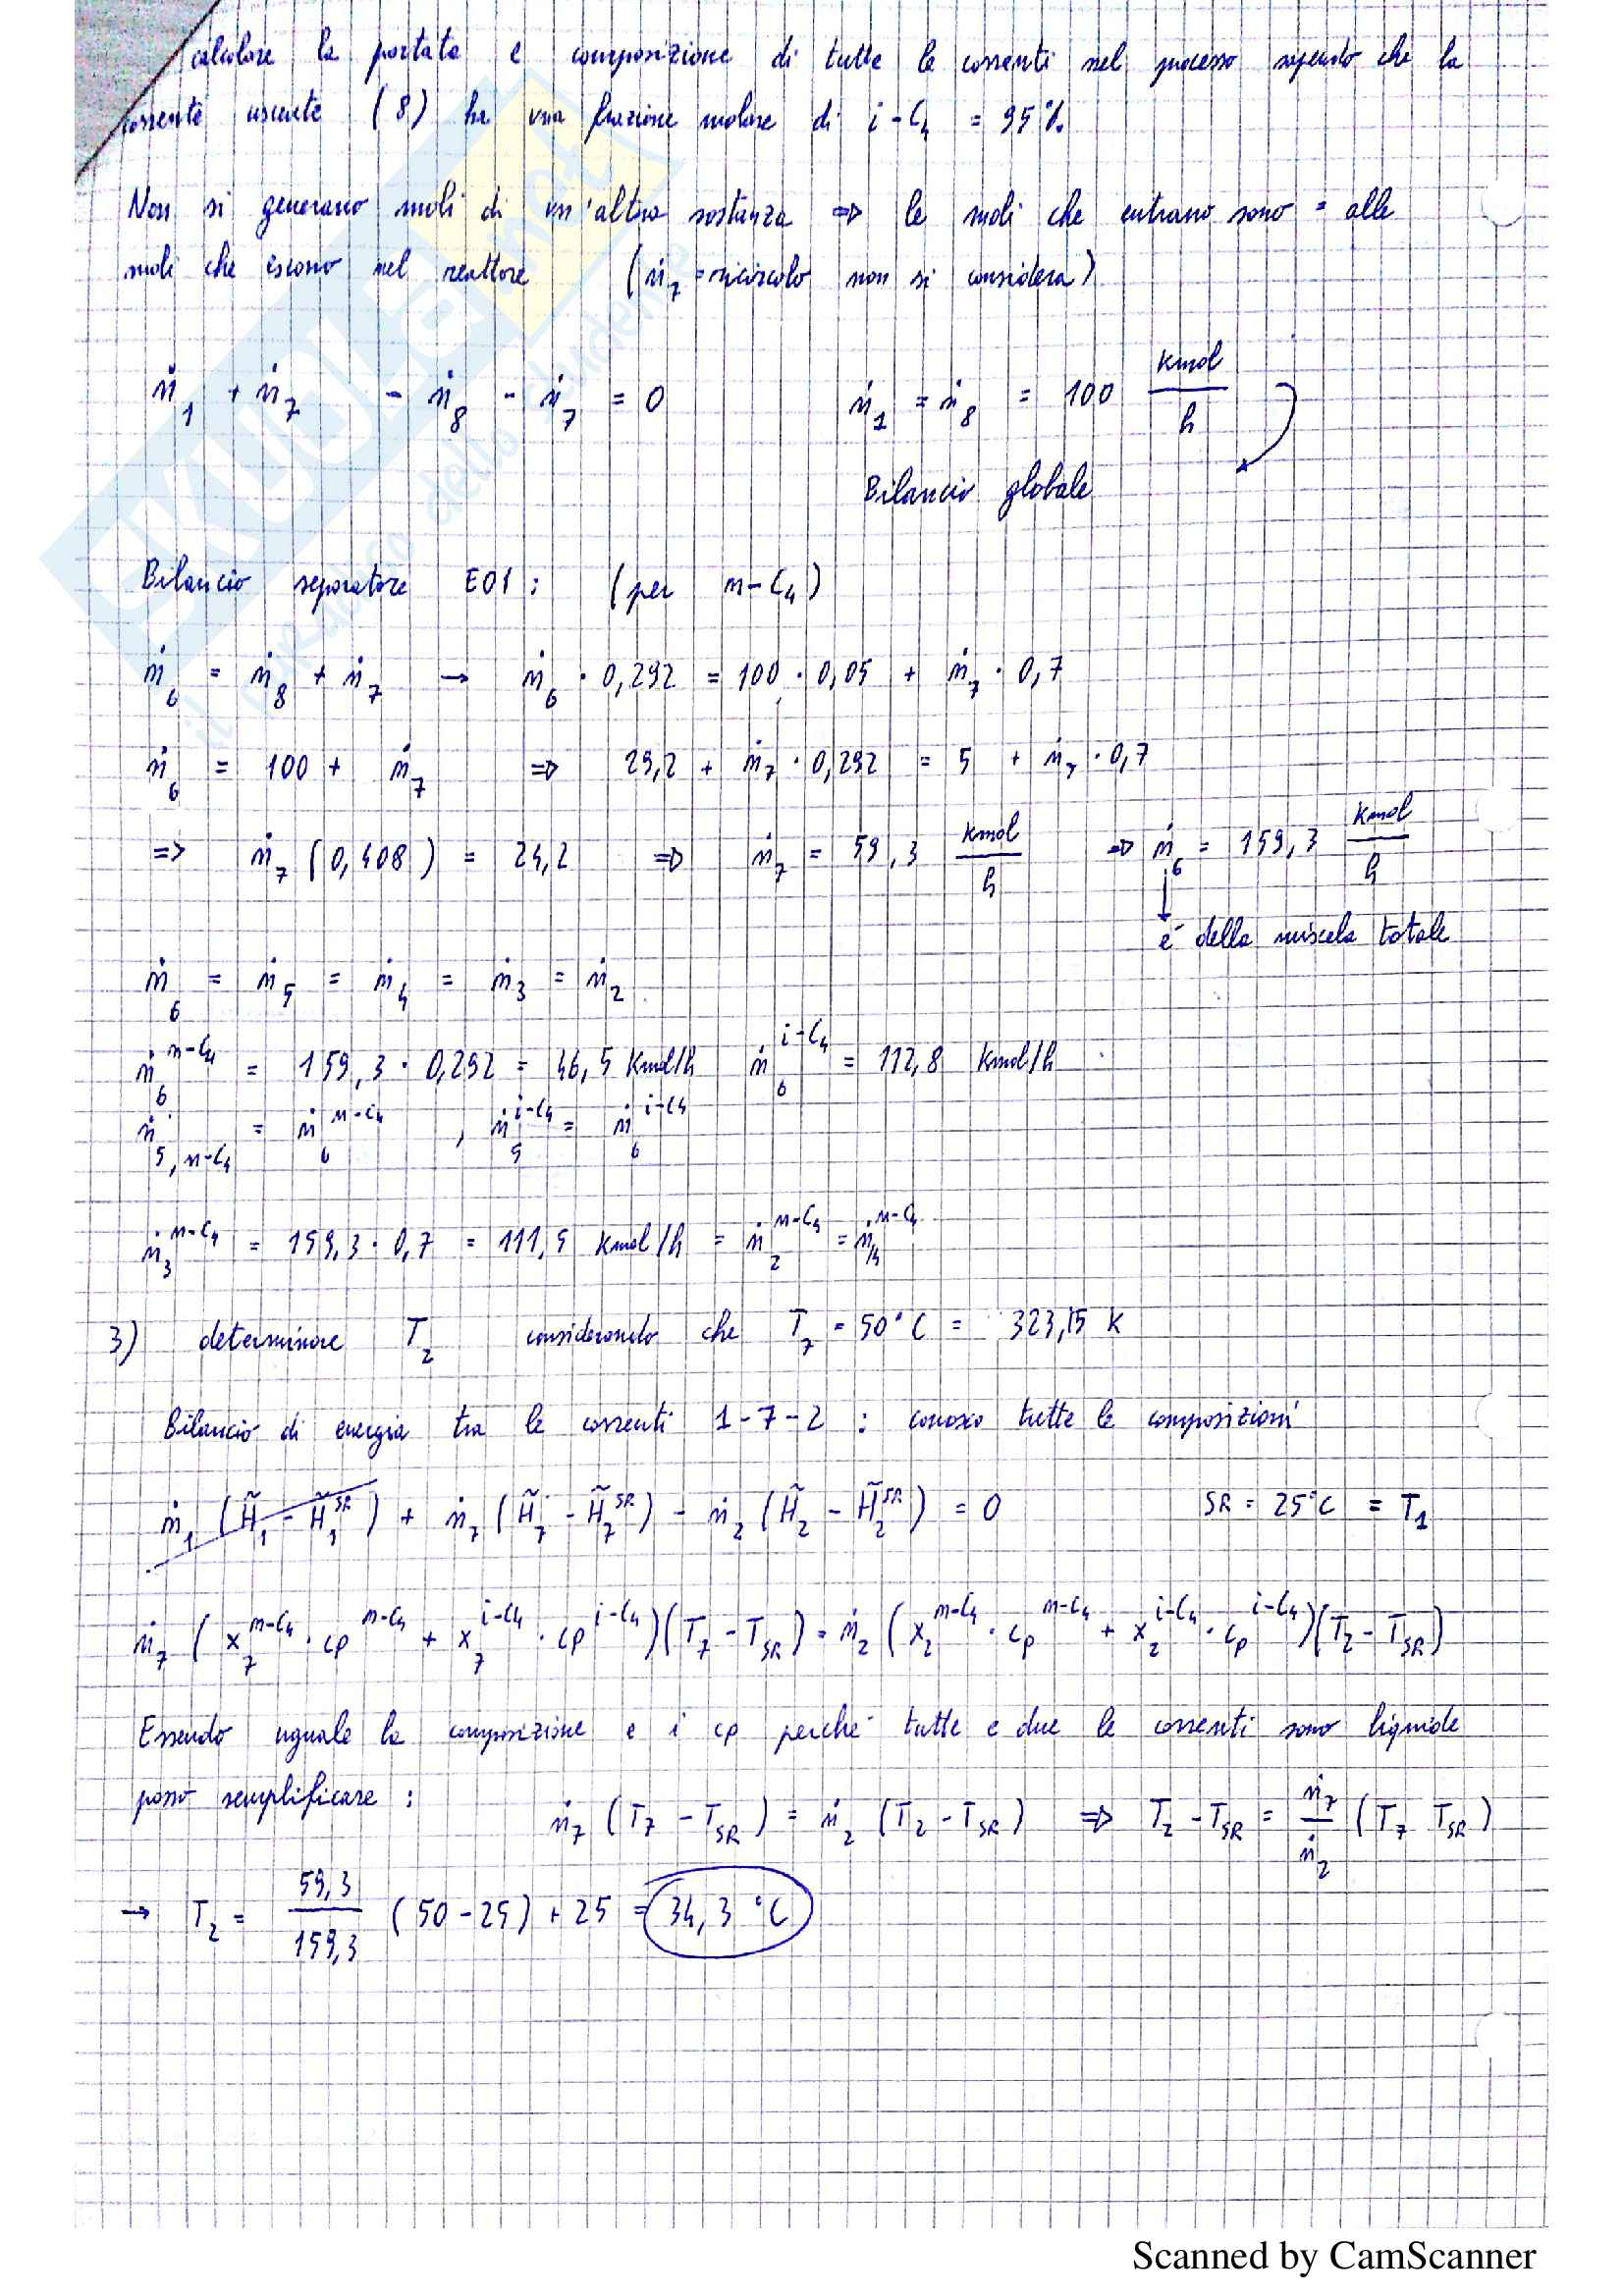 calcolare la portata e composizione di tutte le correnti nel processo sapendo che la
corrente uscente (8) ha una frazione molare di i-C4 = 95%.
Non si generano moli di un'altra sostanza => le moli che entrano sono = alle
moli che escono nel reattore (ṅ7 = ricircolo non si considera)
ṅ1 + ṅ7 - ṅ8 - ṅ7 = 0 ṅ1 = ṅ8 = 100 kmol/h
Bilancio globale
Bilancio separatore E01: (per n-C4)
ṅ6 = ṅ8 + ṅ7 → ṅ6 · 0,292 = 100 · 0,05 + ṅ7 · 0,7
ṅ6 = 100 + ṅ7 => 29,2 + ṅ7 · 0,292 = 5 + ṅ7 · 0,7
=> ṅ7 (0,408) = 24,2 => ṅ7 = 59,3 kmol/h => ṅ6 = 159,3 kmol/h
è della miscela totale
ṅ6 = ṅ5 = ṅ4 = ṅ3 = ṅ2
ṅ6^n-C4 = 159,3 · 0,292 = 46,5 kmol/h ṅ6^i-C4 = 112,8 kmol/h
ṅ5,n-C4 = ṅ6^n-C4 , ṅ5^i-C4 = ṅ6^i-C4
ṅ3^n-C4 = 159,3 · 0,7 = 111,5 kmol/h = ṅ2^n-C4 = ṅ4^n-C4
3) determinare T2 considerando che T7 = 50°C = 323,15 K
Bilancio di energia tra le correnti 1-7-2 : conosco tutte le composizioni
ṅ1 (H̃1 - H̃1^SR) + ṅ7 (H̃7 - H̃7^SR) - ṅ2 (H̃2 - H̃2^SR) = 0 SR = 25°C = T1
ṅ7 (x7^n-C4 · cp^n-C4 + x7^i-C4 · cp^i-C4)(T7 - TSR) = ṅ2 (x2^n-C4 · cp^n-C4 + x2^i-C4 · cp^i-C4)(T2 - TSR)
Essendo uguale la composizione e i cp perché tutte e due le correnti sono liquide
posso semplificare : ṅ7 (T7 - TSR) = ṅ2 (T2 - TSR) => T2 - TSR = ṅ7/ṅ2 (T7 TSR)
→ T2 = 59,3/159,3 (50-25) + 25 = 34,3 °C
Scanned by CamScanner